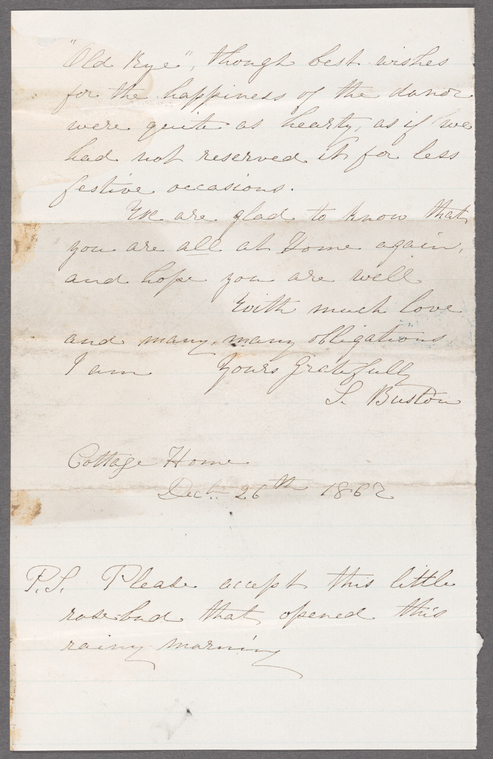 "Old Rye", though best wishes
for the happiness of the donor
were quite as hearty, as if we
had not reserved it for less
festive occasions.
We are glad to know that
you are all at Home again,
and hope you are well
With much love
and many, many obligations
I am Yours Gratefully
S. Buston
Cottage Home
Dec. 26th 1862
P.S. Please accept this little
rose-bud that opened this
rainy morning